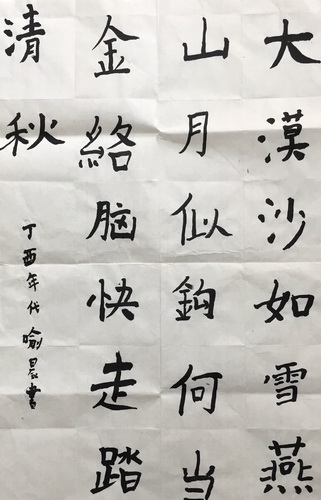 大漠沙如雪燕
山月似鈎何当
金絡脑快走踏
清秋
丁酉年代喻晨書